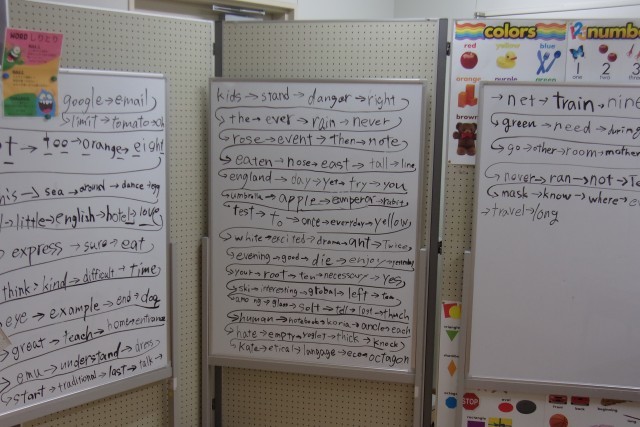 WORD しりとり
google → email
→ limit → tomato → oh
→ too → orange → eight
→ sea → around → dance → egg
→ little → english → hotel → love
→ express → sure → eat
think → kind → difficult → time
eye → example → end → dog
→ great → teach → home → entrance
→ emu → understand → dress
→ start → traditional → last → talk →
kids → stand → dangar → right
→ the → ever → rain → never
→ rose → event → then → note
→ eaten → nose → east → tall → line
→ england → day → yet → try → you
→ umbrella → apple → emperar → rabbit
test → to → once → everyday → yellow
→ white → excited → drama → ant → twice
→ evening → good → die → enjoy → yesterday
→ your → root → tea → necessary → yes
→ ski → interesting → global → left → tea
among → glass → soft → tall → last → thuach
→ human → notebook → koria → and → each
→ hate → empty → → thick → knock
→ Kate → etical → langage → eco → octagon
→ net → train → nine
→ green → need → during
→ go → other → room → mother
→ never → ran → not → Te
→ mask → know → where → e
→ travel → long
colors
number
red
yellow
blue
orange
purple
green
1 2 3
one two three
STOP